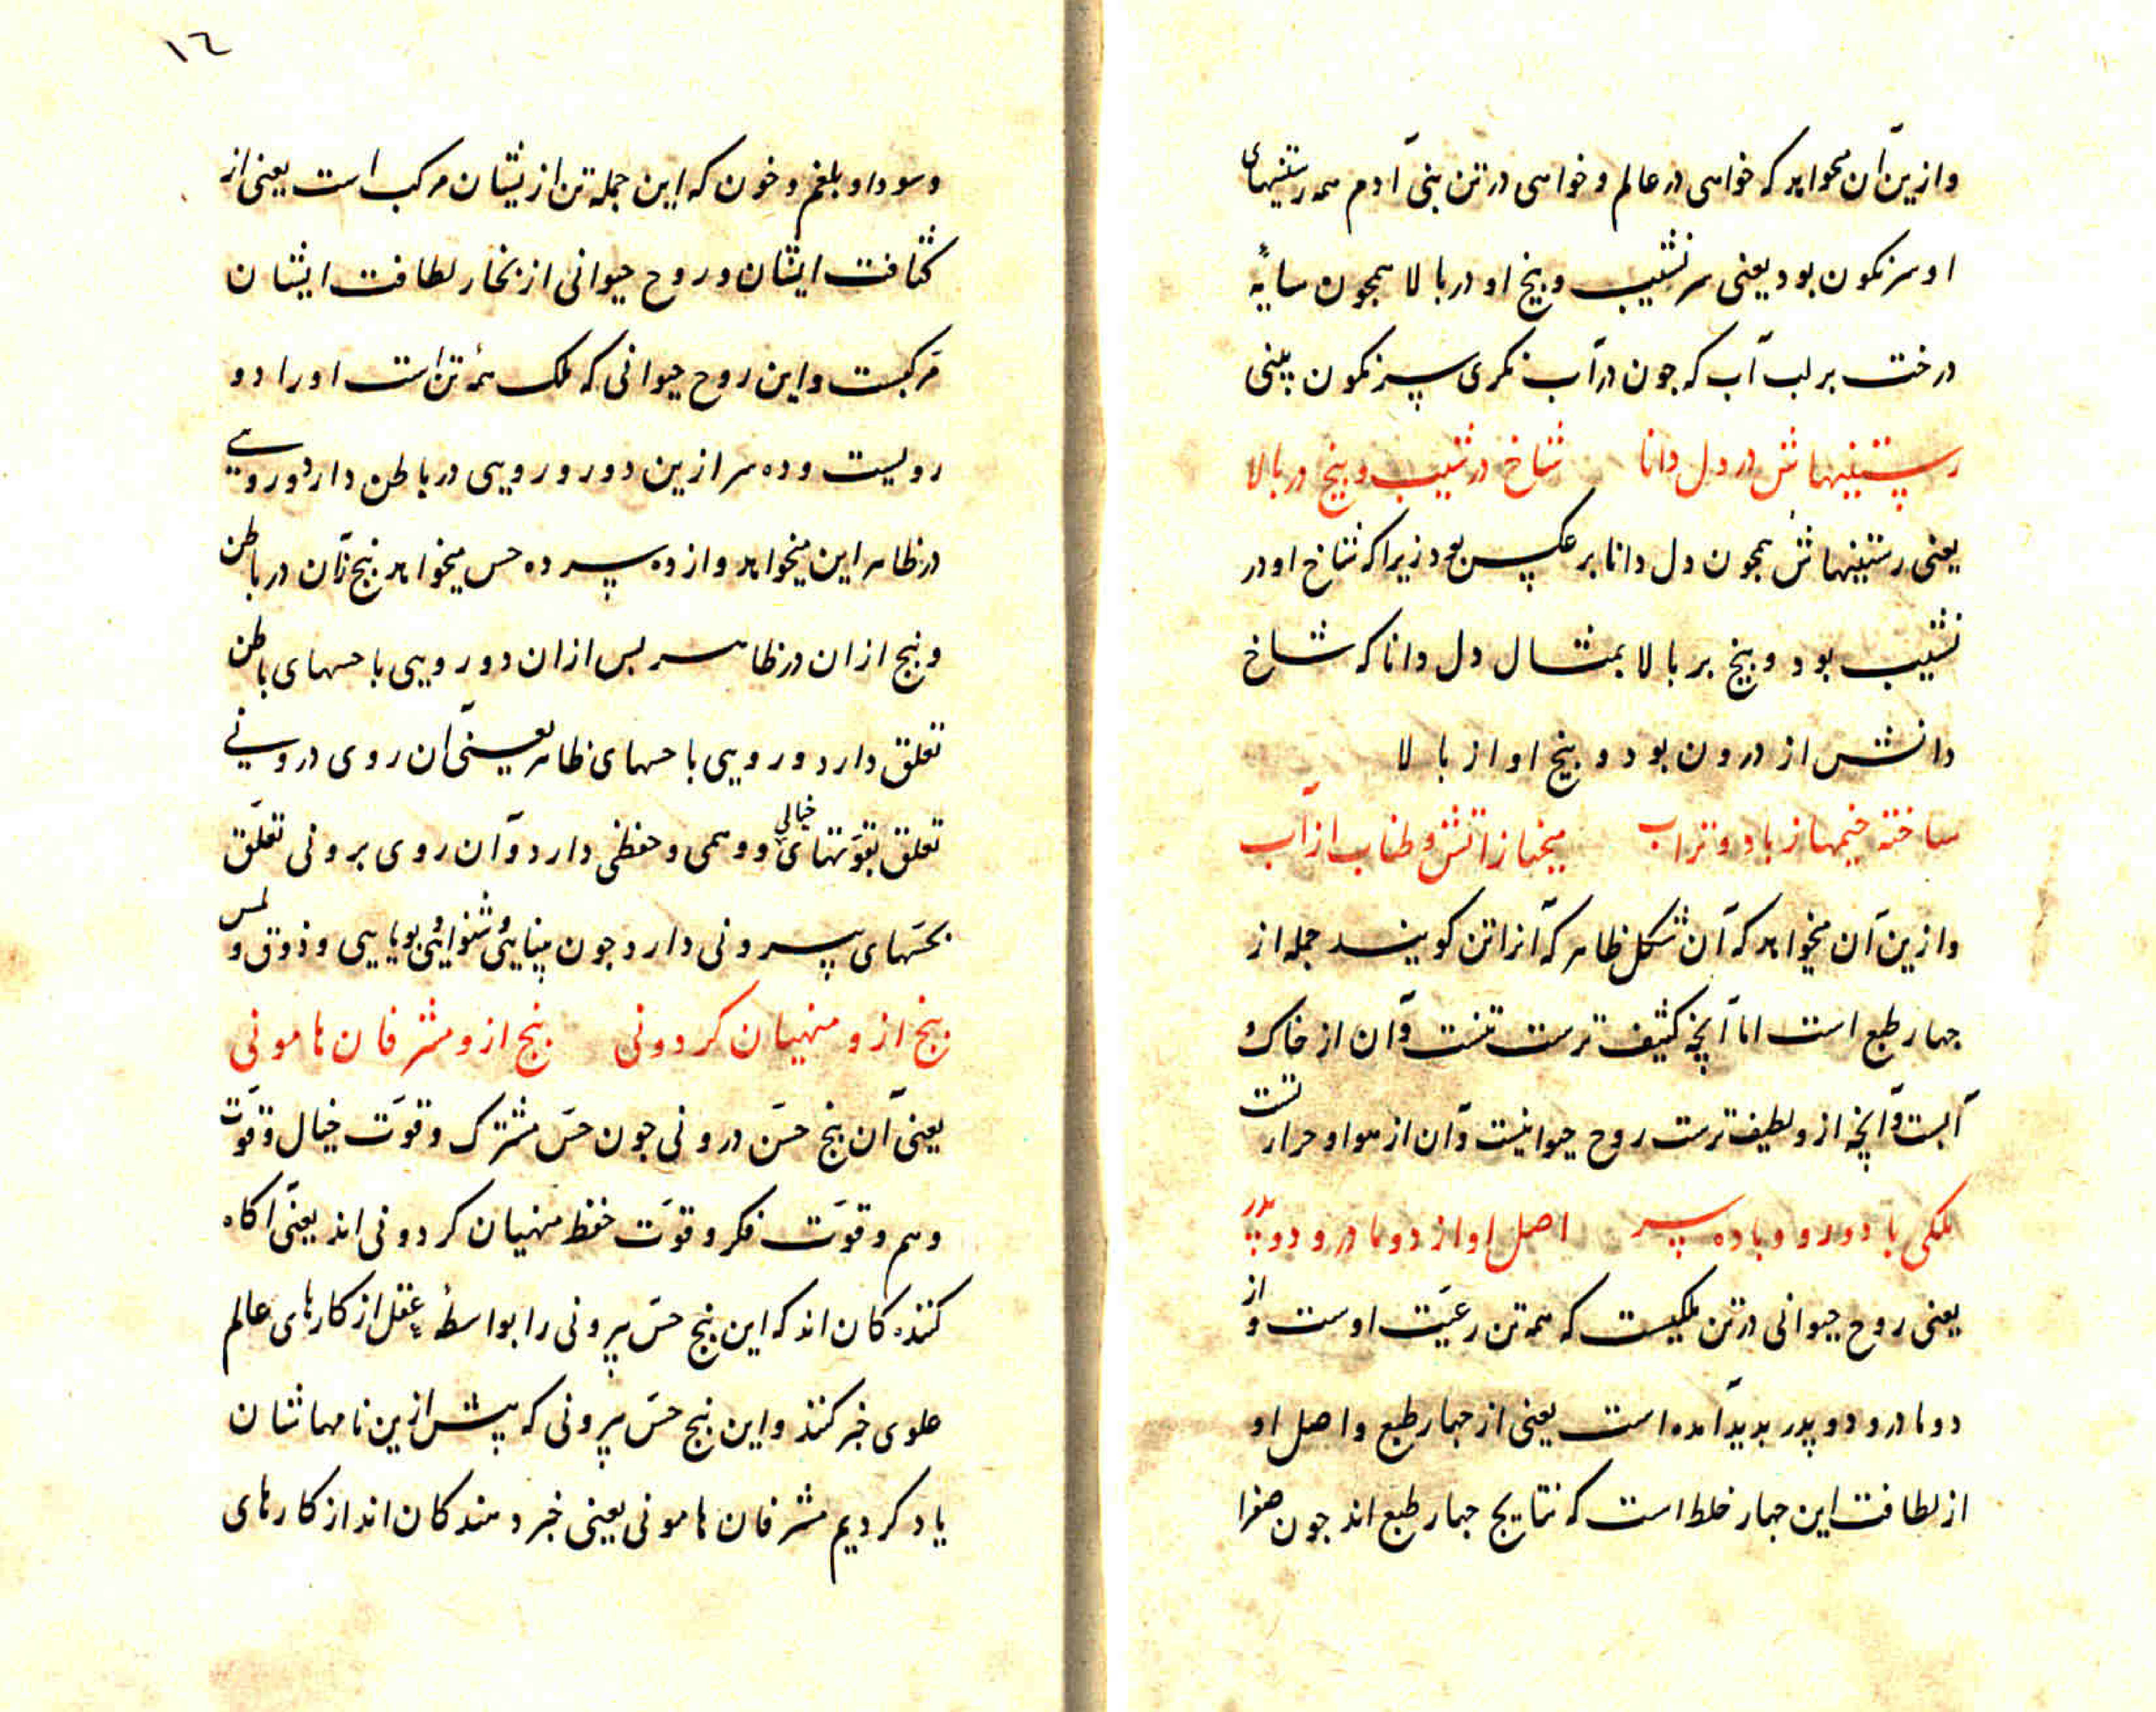 وازین آن میخواهد که خواهی در عالم و خواهی در تن بنی آدم همه رستنیهای
او سرنکون بود یعنی سر نشیب و بیخ او در بالا همجون سایهٔ
درخت بر لب آب که جون در آب نکری سرنکون بینی
رستنیهاش در دل دانا شاخ در شیب و بیخ در بالا
یعنی رستنیهاش همجون دل دانا بر عکس بود زیرا که شاخ او در
نشیب بود و بیخ بر بالا بمثال دل دانا که شاخ
دانش از درون بود و بیخ او از بالا
ساخته خیمها ز باد و تراب میخها ز اتش و طناب از آب
وازین آن میخواهد که آن شکل ظاهر که آنرا تن کویند جمله از
جهار طبع است اما آنچه کثیف ترست تنست و آن از خاک و
آبست و آنچه ازو لطیف ترست روح حیوانیست و آن از هوا و حرارتست
ملکی با دو رو و با ده سر اصل او از دو مادر و دو پدر
یعنی روح حیوانی در تن ملکیست که همه تن رعیّت اوست و از
دو مادر و دو پدر بدید آمده است یعنی از جهار طبع و اصل او
از لطافت این جهار خلط است که نتایج جهار طبع اند جون صفرا
١٦
و سودا و بلغم و خون که این جمله تن ازیشان مرکب است یعنی از
کثافت ایشان و روح حیوانی از بخار لطافت ایشان
مرکبست و این روح حیوانی که ملک همهٔ تن است او را دو
رویست و ده سر ازین دو رو رویی در باطن دارد و رویی
در ظاهر این میخواهد و از ده سر ده حس میخواهد بنج زآن در باطن
و بنج ازان در ظاهر بس ازان دو رویی با حسهای باطن
تعلق دارد و رویی با حسهای ظاهر یعنی آن روی درونی
تعلق بقوّتهای خیالی و وهمی و حفظی دارد و آن روی برونی تعلّق
بحسّهای بیرونی دارد جون بینایی و شنوایی و بویایی و ذوق و لمس
بنج ازو منهیان کردونی بنج ازو مشرفان هامونی
یعنی آن بنج حسّ درونی جون حسّ مشترک و قوّت خیال و قوّت
وهم و قوّت فکر و قوّت حفظ منهیان کردونی اند یعنی آکاه
کننده کان اند که این بنج حسّ بیرونی را بواسطهٔ عقل از کارهای عالم
علوی خبر کنند و این بنج حسّ بیرونی که پیش ازین نامهاشان
یاد کردیم مشرفان هامونی یعنی خبر دهندکان اند از کارهای